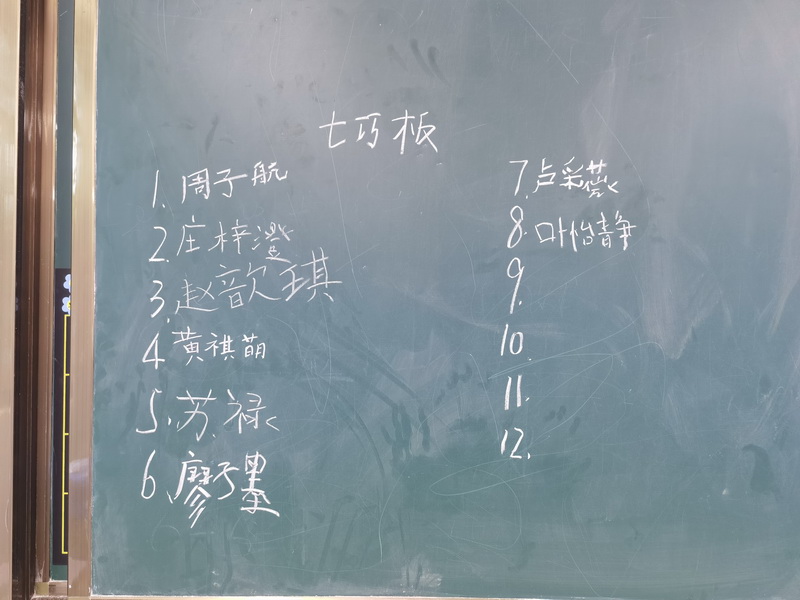 七巧板
1. 周子航
2. 庄梓澄
3. 赵歆琪
4 黄祺萌
5. 苏禄
6. 廖子墨
7. 卢彩薇
8. 叶怡静
9.
10.
11.
12.